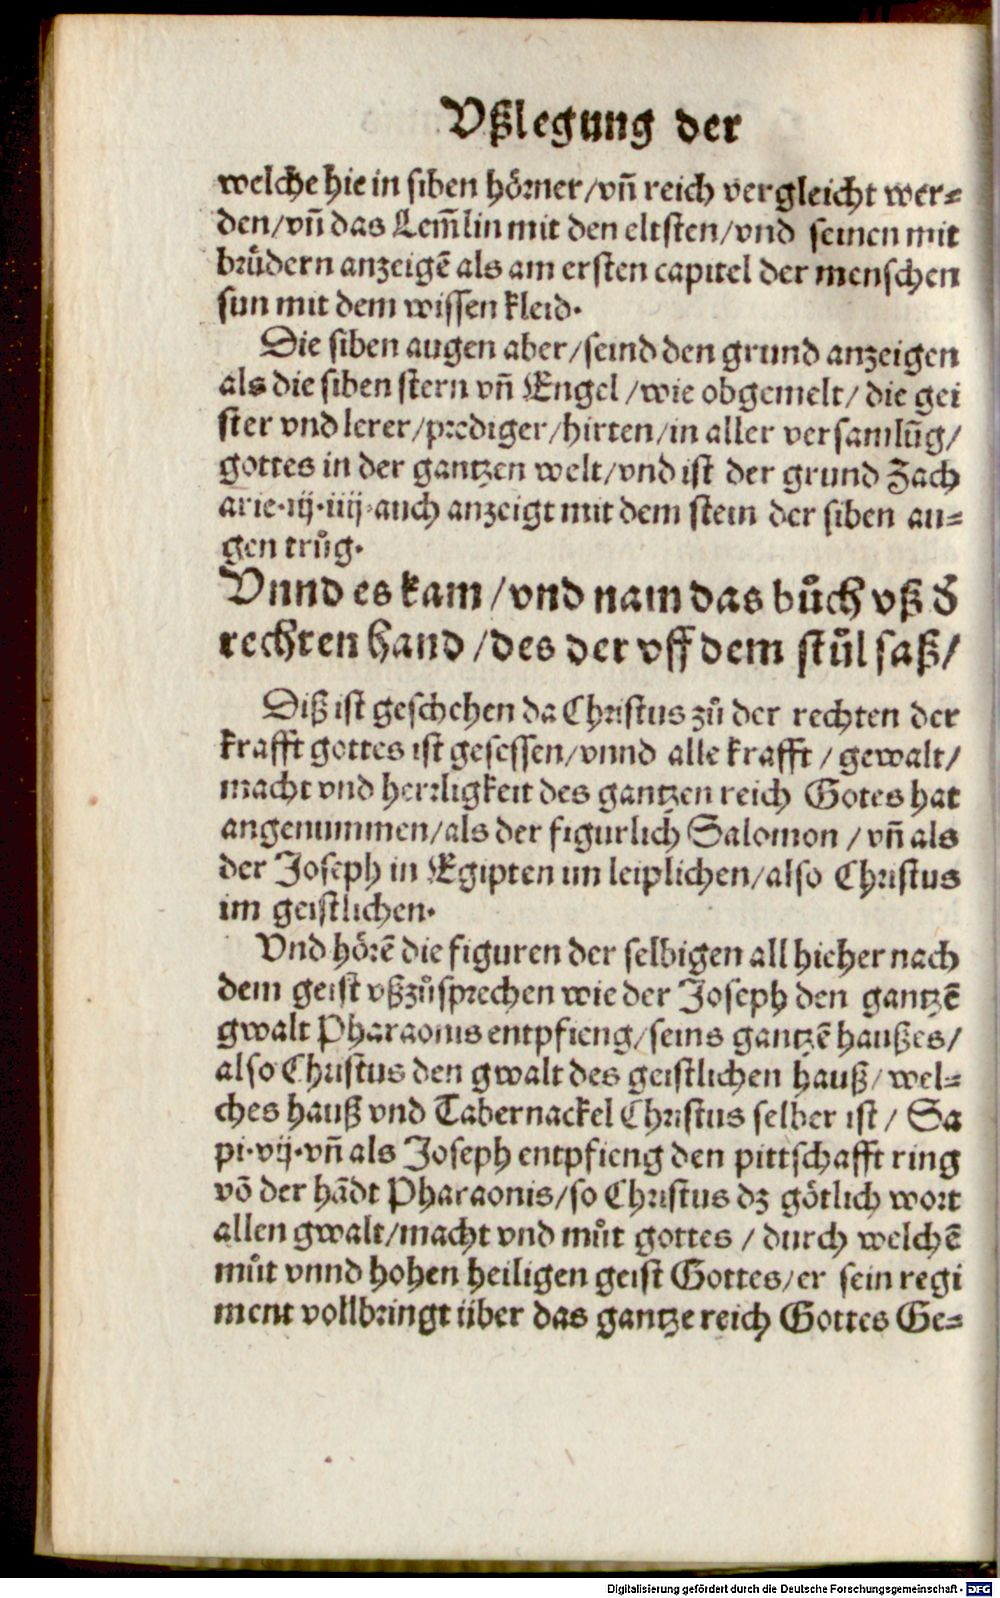 Vßlegung der
welche hie in siben hörner/vñ reich vergleicht wer=
den/vñ das Lem̃lin mit den eltsten/vnd seinen mit
brůdern anzeigẽ als am ersten capitel der menschen
sun mit dem wissen kleid.
Die siben augen aber/seind den grund anzeigen
als die siben stern vñ Engel/wie obgemelt/die gei
ster vnd lerer/prediger/hirten/in aller versamlũg/
gottes in der gantzen welt/vnd ist der grund Zach
arie.iij.iiij.auch anzeigt mit dem stein der siben au=
gen trůg.
Vnnd es kam/vnd nam das bůch vß d̾
rechten hand/des der vff dem stůl saß/
Diß ist geschehen da Christus zů der rechten der
krafft gottes ist gesessen/vnnd alle krafft/gewalt/
macht vnd herrligkeit des gantzen reich Gotes hat
angenummen/als der figurlich Salomon/vñ als
der Joseph in Egipten im leiplichen/also Christus
im geistlichen.
Vnd hörẽ die figuren der selbigen all hieher nach
dem geist vßzůsprechen wie der Joseph den gantzẽ
gwalt Pharaonis entpfieng/seins gantzẽ haußes/
also Christus den gwalt des geistlichen hauß/wel=
ches hauß vnd Tabernackel Christus selber ist/Sa
pi.vij.vñ als Joseph entpfieng den pittschafft ring
võ der hãdt Pharaonis/so Christus dz götlich wort
allen gwalt/macht vnd můt gottes/durch welchẽ
můt vnnd hohen heiligen geist Gottes/er sein regi
ment vollbringt über das gantze reich Gottes Ge=
Digitalisierung gefördert durch die Deutsche Forschungsgemeinschaft - DFG